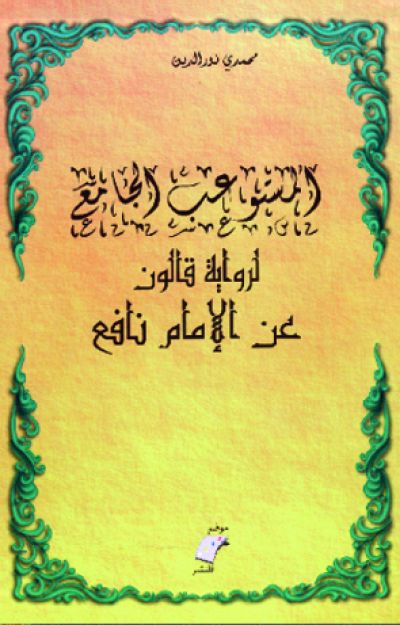 محمدي نورالدين
المستوعب الجامع
لرواية قالون
عن الإمام نافع
موفم
للنشر